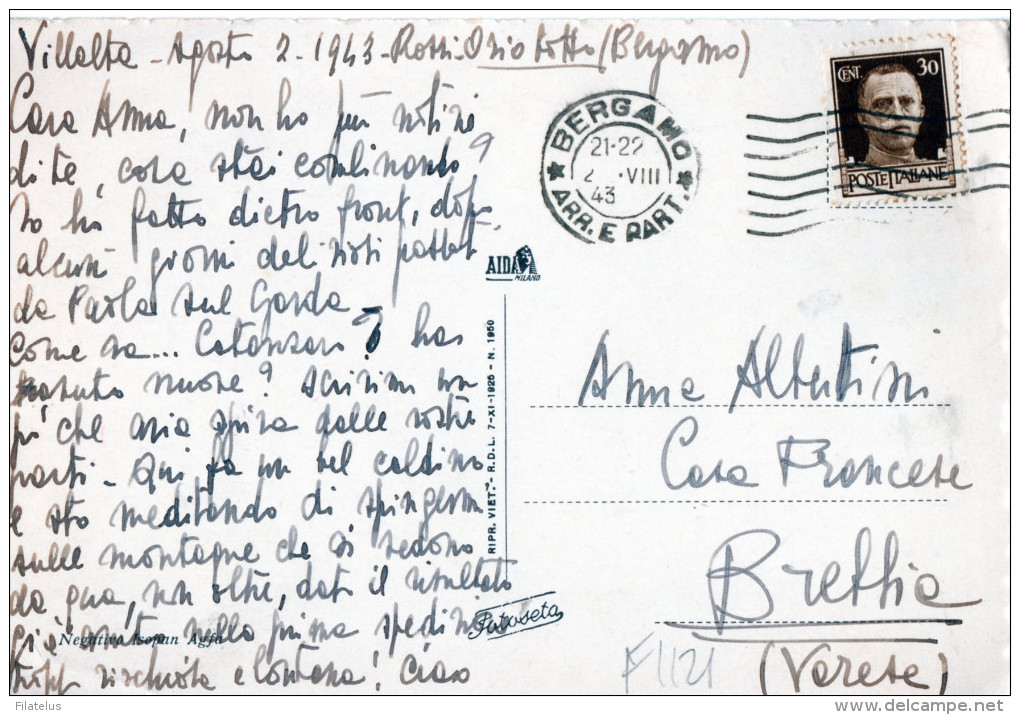 Villalta - Agosto 2 - 1943 - Rossi Osio Sotto (Bergamo)
Cara Anna, non ho più notizie
di te, cosa stai combinando?
Io ho fatto dietro front, dopo
alcuni giorni deliziosi passati
da Paola sul Garda -
Come va... Catanzaro? hai
notizie nuove? scrivimi un
pò che aria spira dalle vostre
parti - Qui fa un bel caldino
e sto meditando di spingermi
sulle montagne che si vedono
da qua, non oltre, dato il risultato
nella prima spedizione
troppo rischiosa e lontana! Ciao
CENT. 30
POSTE ITALIANE
BERGAMO
21-22
2 . VIII
43
ARR. E PART.
AIDA
MILANO
RIPR. VIET. - R.D.L. 7-XI-1925 - N. 1950
Anna Albertini
Casa Francese
Brebbia
(Varese)
F1121
Fotoseta
Negativo Isopan Agfa
Filatelus
www.delcampe.net